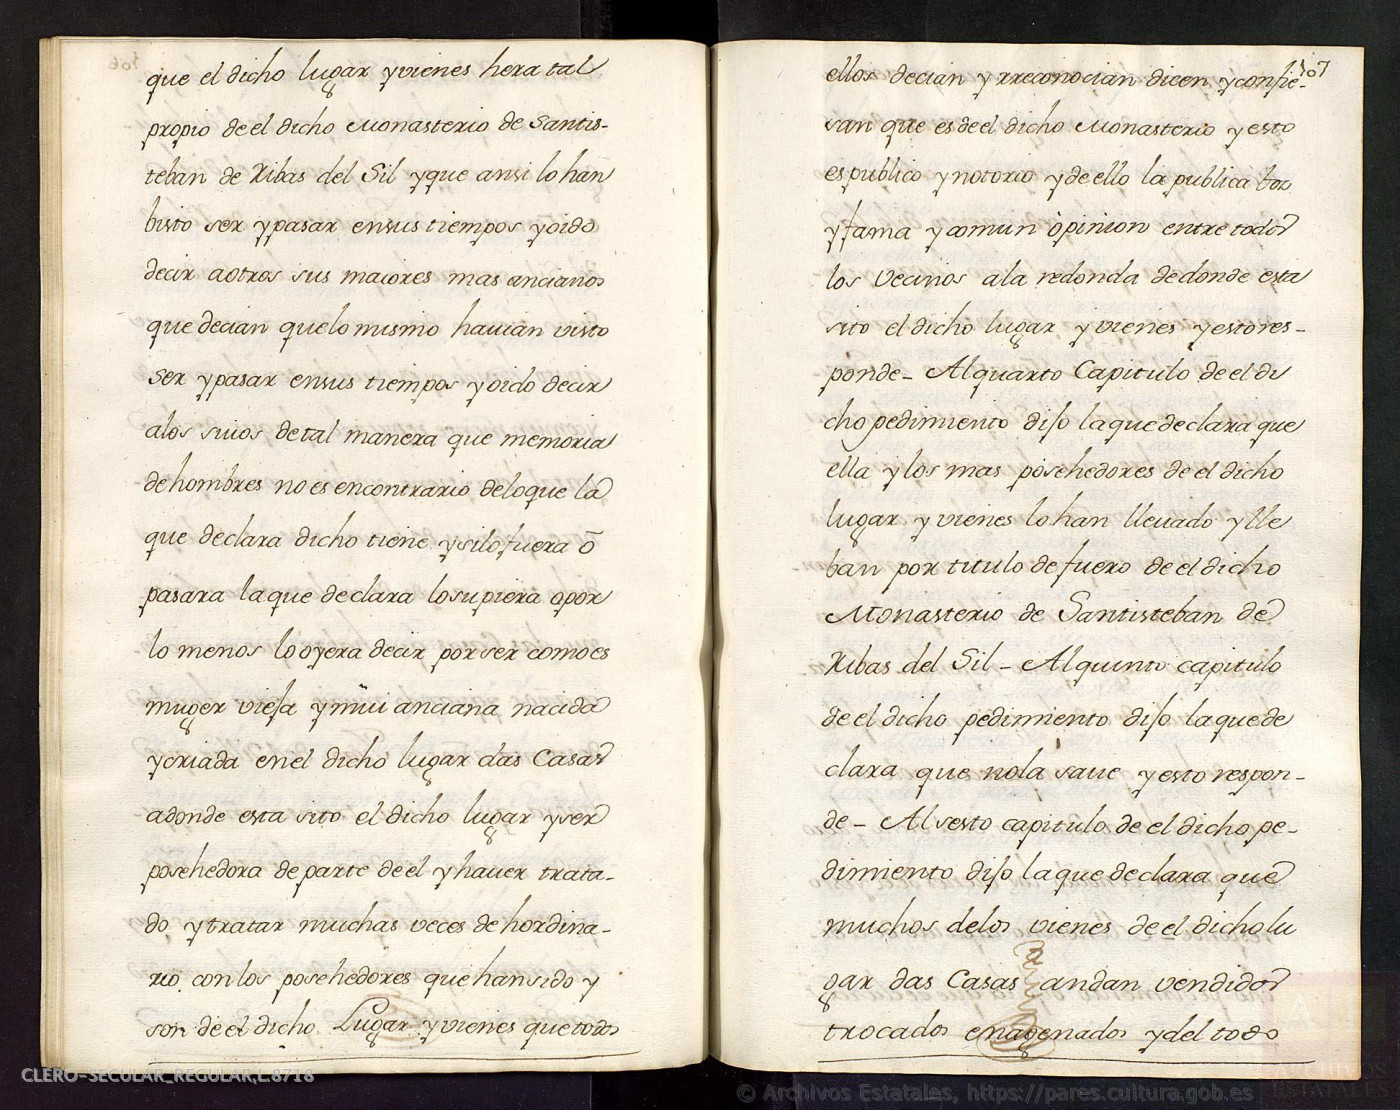 que el dicho lugar y vienes hera tal
propio de el dicho Monasterio de Santis-
teban de Ribas del Sil y que ansi lo han
bisto ser y pasar en sus tiempos y oido
decir a otros sus maiores mas ancianos
que decian que lo mismo havian visto
ser y pasar en sus tiempos y oido decir
a los suios de tal manera que memoria
de hombres no es en contrario de lo que la
que declara dicho tiene y si lo fuera ô
pasara la que declara lo supiera o por
lo menos lo oyera decir por ser como es
muger viefa y mui anciana nacida
y criada en el dicho lugar das Casas
adonde esta sito el dicho lugar y ser
posehedora de parte de el y haver trata-
do y tratar muchas veces de hordina-
rio con los posehedores que han sido y
son de el dicho Lugar y vienes que todos
107
ellos decian y rreconocian dicen y confie-
san que es de el dicho Monasterio y esto
es publico y notorio y de ello la publica boz
y fama y comun opinion entre todos
los vecinos a la redonda de donde esta
sito el dicho lugar y vienes y esto res-
ponde- Al quarto Capitulo de el di
cho pedimiento difo la que declara que
ella y los mas posehedores de el dicho
lugar y vienes lo han llevado y lle
ban por titulo de fuero de el dicho
Monasterio de Santisteban de
Ribas del Sil - Al quinto capitulo
de el dicho pedimiento difo la que de
clara que no la save y esto respon-
de- Al sesto capitulo de el dicho pe-
dimiento difo la que declara que
muchos de los vienes de el dicho lu
gar das Casas andan vendidos
trocados enagenados y del todo
CLERO-SECULAR_REGULAR,L.8718
© Archivos Estatales, https://pares.cultura.gob.es
ARCHIVOS
ESTATALES